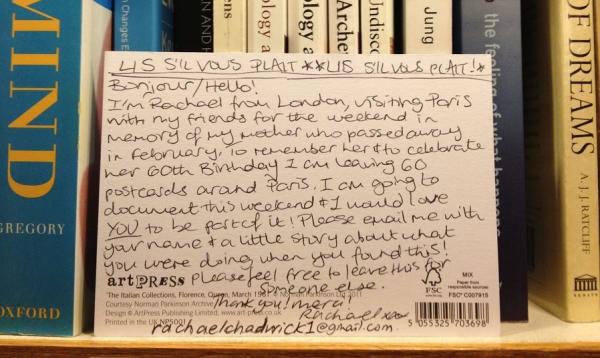 LIS S'IL VOUS PLAIT **LIS S'IL VOUS PLAIT!*
Bonjour/Hello!
I'm Rachael from London, visiting Paris
with my friends for the weekend in
memory of my mother who passed away
in February, to remember her & to celebrate
her 60th Birthday I am leaving 60
postcards around Paris. I am going to
document this weekend & I would love
YOU to be part of it! Please email me with
your name & a little story about what
you were doing when you found this!
artPRESS Please feel free to leave this for
someone else.
'The Italian Collections, Florence, Queen, March 1961' © Norman Parkinson Ltd 2011
Courtesy Norman Parkinson Archive
Design © ArtPress Publishing Limited, www.art-press.co.uk
Printed in the UK NP5001
Thank you! merci!
Rachael xxx
rachaelchadwick1@gmail.com
FSC
MIX
Paper from
responsible sources
FSC® C007915
5 055325 703698
MIND
GREGORY
OXFORD
n Changes E
AN AND H
ens
ology a
ology a
Arche
Undisco
Jung
the feeling of what happens
OF DREAMS
A. J. J. RATCLIFF
SENATE